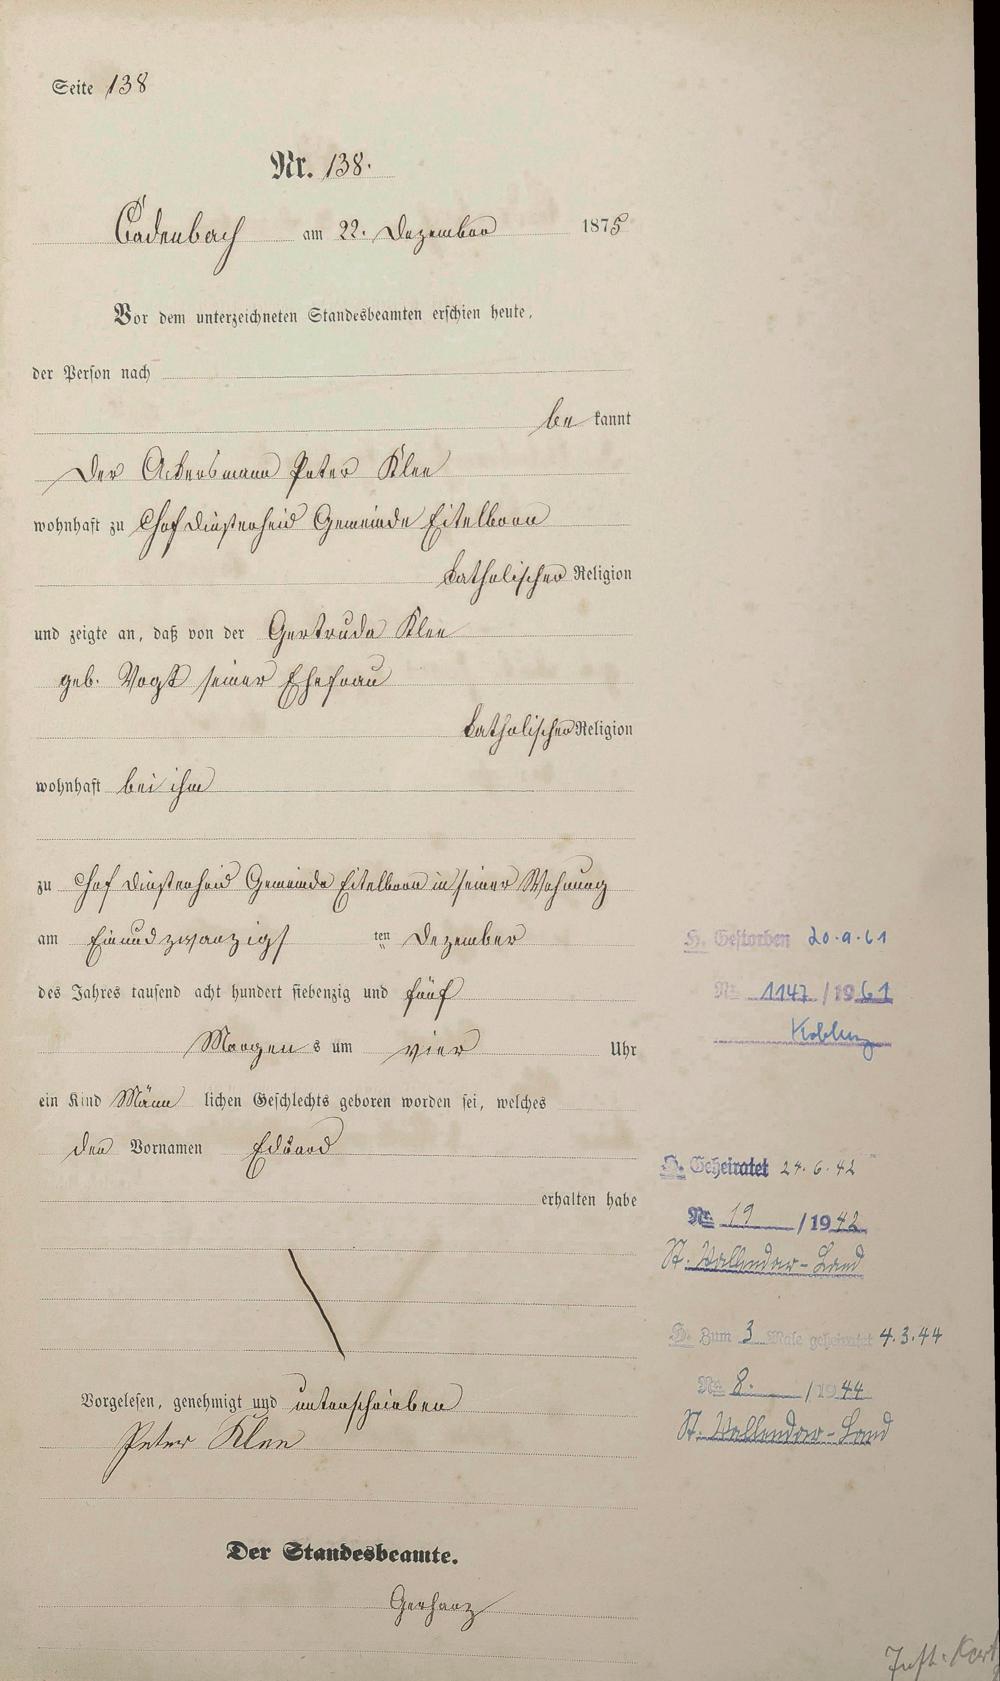 Seite 138
Nr. 138.
Cadenbach am 22. Dezember 1875
Vor dem unterzeichneten Standesbeamten erschien heute,
der Person nach
be kannt
Der Ackersmann Peter Klee
wohnhaft zu Hof Dinsterheid Gemeinde Eitelborn
katholischer Religion
und zeigte an, daß von der Gertruda Klee
geb. Vogt seiner Ehefrau
katholischer Religion
wohnhaft bei ihm
zu Hof Dinsterheid Gemeinde Eitelborn in seiner Wohnung
am Einundzwanzigs ten Dezember
des Jahres tausend acht hundert siebenzig und fünf
Morgen s um vier Uhr
ein Kind Männ lichen Geschlechts geboren worden sei, welches
den Vornamen Eduard
erhalten habe
Vorgelesen, genehmigt und unterschrieben
Peter Klee
Der Standesbeamte.
Gerharz
H. Gestorben 20.9.61
Nr. 1147 / 1961
Koblenz
H. Geheiratet 24.6.42
Nr. 19 / 1942
St. Vallendar-Land
H. Zum 3 Male geheiratet 4.3.44
Nr. 8. / 1944
St. Vallendar-Land